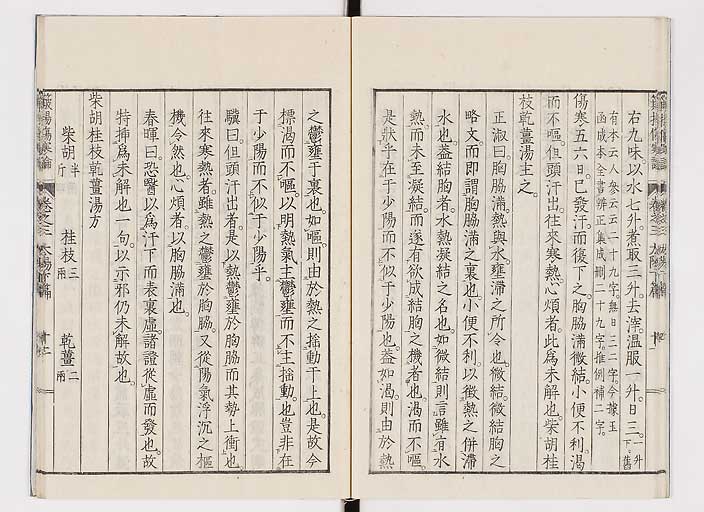 右九味以水七升煮取三升去滓溫服一升日三。一升下舊
有本云人參云云二十九字。無日三二字。今據玉
函成本全書辨正集成刪二十九字。推例補二字。
傷寒五六日已發汗而復下之胸脇滿微結小便不利渴
而不嘔但頭汗出往來寒熱心煩者此爲未解也柴胡桂
枝乾薑湯主之。
正淑曰。胸脇滿熱與水壅滯之所令也。微結。微結胸之
略文。而即謂胸脇滿之裏也。小便不利以徵熱之併滯
水也。蓋結胸者水熱凝結之名也。如微結則言雖有水
熱而未至凝結。而遂有欲成結胸之機者也。渴而不嘔。
是狀乎在于少陽而不似于少陽也。蓋如渴。則由於熱
之鬱壅于裏也。如嘔。則由於熱之搖動于上也。是故今
標渴而不嘔。以明熱氣主鬱壅而不主搖動也。豈非在
于少陽而不似于少陽乎。
驥曰。但頭汗出者。是以熱鬱壅於胸脇而其勢上衝也。
往來寒熱者。雖熱之鬱壅於胸脇。又從陽氣浮沉之樞
機令然也。心煩者。以胸脇滿也。
春暉曰。恐醫以爲汗下而表裏虛。諸證從虛而發也。故
特揷爲未解也一句。以示邪仍未解故也。
柴胡桂枝乾薑湯方
柴胡半斤 桂枝三兩 乾薑二兩
卷之三 太陽下篇